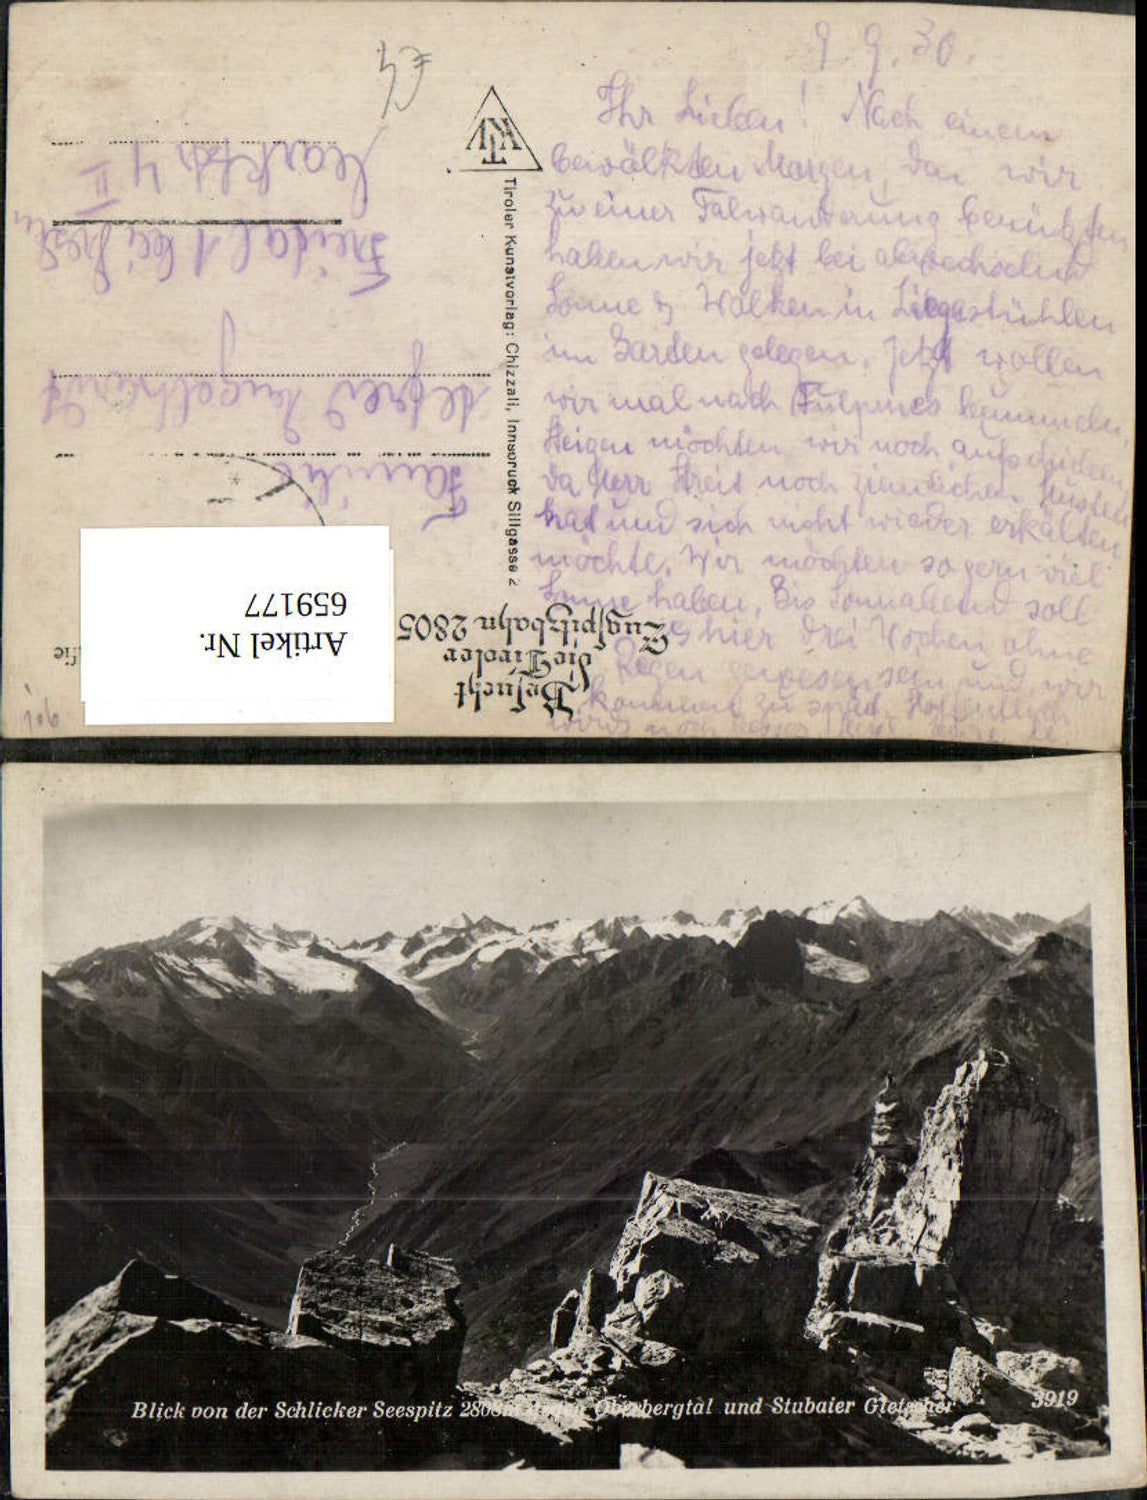 9. 9. 30.
Ihr Lieben! Nach einem
bewölkten Morgen, den wir
zu einer Talwanderung benützten
haben wir jetzt bei abwechselnd
Sonne & Wolken in Liegestühlen
im Garten gelegen. Jetzt wollen
wir mal nach Fulpmes bummeln.
Steigen möchten wir noch aufschieben
da Herr Streit noch ziemlichen Husten
hat und sich nicht wieder erkälten
möchte. Wir möchten so gern viel
Sonne haben. Bis Sonnabend soll
es hier drei Wochen ohne
Regen gewesen sein und wir
kommen zu spät. Hoffentlich
wird noch
Tiroler Kunstverlag: Chizzali, Innsbruck Sillgasse 2
Familie
Alfred Engelhardt
Freital 1 bei Dresden
Marktstr 4 II
Besucht
die Tiroler
Zugspitzbahn 2805
Artikel Nr.
659177
Blick von der Schlicker Seespitz 2808m gegen Oberbergtal und Stubaier Gletscher
3919